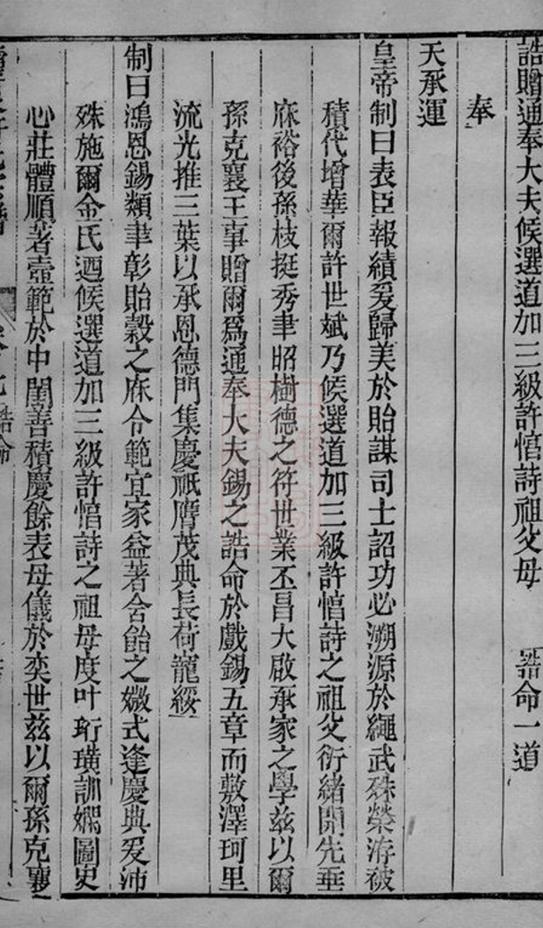 誥贈通奉大夫候選道加三級許愭詩祖父母　誥命一道
奉
天承運
皇帝制曰表臣報績爰歸美於貽謀司士詔功必溯源於繩武殊榮洊被
積代增華爾許世斌乃候選道加三級許愭詩之祖父衍緒開先垂
庥裕後孫枝挺秀聿昭樹德之符世業丕昌大啟承家之學茲以爾
孫克襄王事贈爾為通奉大夫錫之誥命於戲錫五章而敷澤珂里
流光推三葉以承恩德門集慶祇膺茂典長荷寵綏
制曰鴻恩錫類聿彰貽穀之庥令範宜家益著含飴之媺式逢慶典爰沛
殊施爾金氏迺候選道加三級許愭詩之祖母度叶珩璜訓嫻圖史
心莊體順著壼範於中閨善積慶餘表母儀於奕世茲以爾孫克襄
誥命